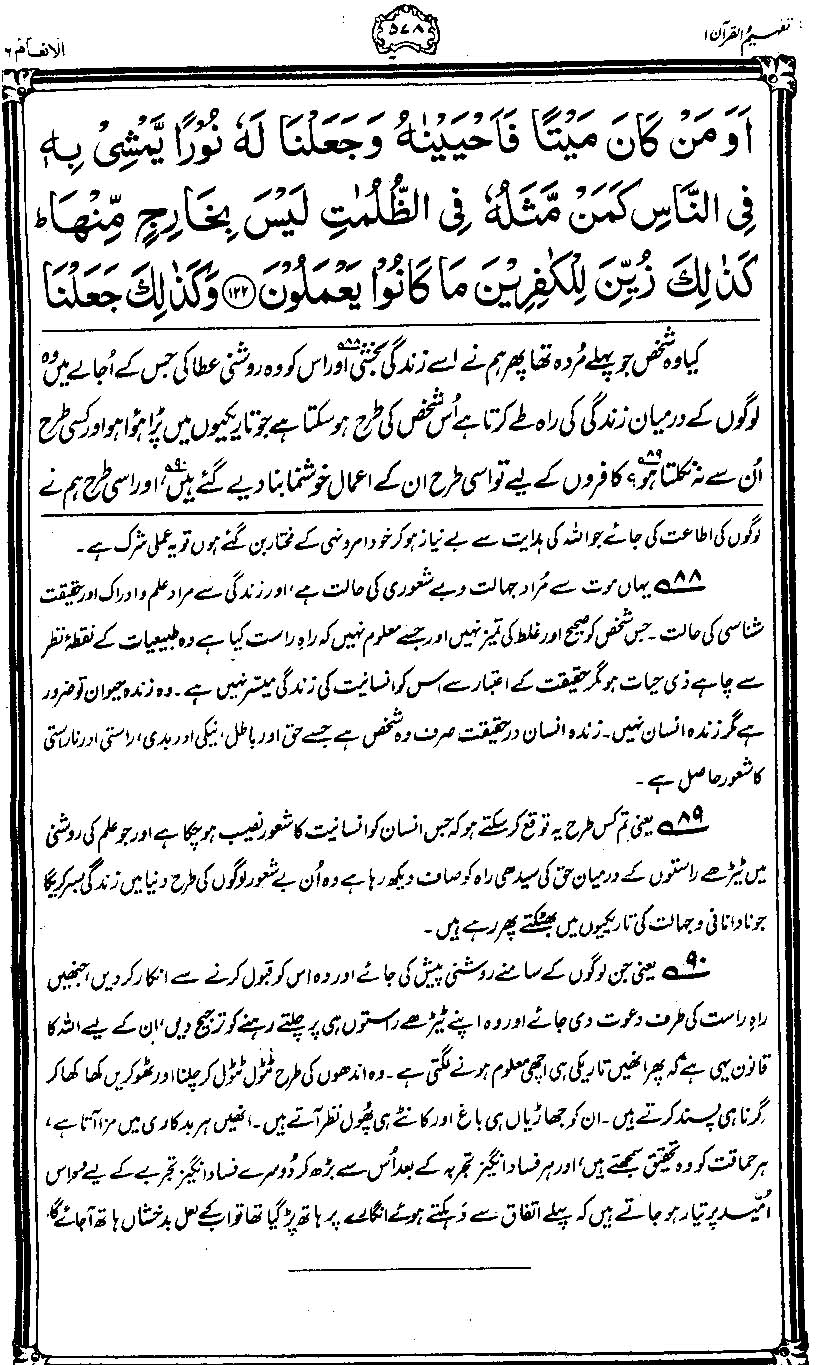 تفہیم القرآن ۱
۵۷۸
الانعام ۶
اَوَ مَنْ كَانَ مَيْتًا فَاَحْيَيْنٰهُ وَ جَعَلْنَا لَهٗ نُوْرًا يَّمْشِيْ بِهٖ
فِي النَّاسِ كَمَنْ مَّثَلُهٗ فِي الظُّلُمٰتِ لَيْسَ بِخَارِجٍ مِّنْهَا ؕ
كَذٰلِكَ زُيِّنَ لِلْكٰفِرِيْنَ مَا كَانُوْا يَعْمَلُوْنَ ﴿۱۲۲﴾ وَ كَذٰلِكَ جَعَلْنَا
کیا وہ شخص جو پہلے مُردہ تھا پھر ہم نے اسے زندگی بخشی۸۸ اور اس کو وہ روشنی عطا کی جس کے اُجالے میں وہ
لوگوں کے درمیان زندگی کی راہ طے کرتا ہے اُس شخص کی طرح ہو سکتا ہے جو تاریکیوں میں پڑا ہوا ہو اور کسی طرح
اُن سے نہ نکلتا ہو؟۸۹ کافروں کے لیے تو اسی طرح ان کے اعمال خوشنما بنا دیے گئے ہیں۹۰، اور اسی طرح ہم نے
لوگوں کی اطاعت کی جائے جو اللہ کی ہدایت سے بے نیاز ہو کر خود امر و نہی کے مختار بن گئے ہوں تو یہ عملی شرک ہے۔
۸۸ یہاں موت سے مُراد جہالت و بے شعوری کی حالت ہے، اور زندگی سے مراد علم و ادراک اور حقیقت
شناسی کی حالت۔ جس شخص کو صحیح اور غلط کی تمیز نہیں اور جسے معلوم نہیں کہ راہِ راست کیا ہے وہ طبیعیات کے نقطۂ نظر
سے چاہے ذی حیات ہو مگر حقیقت کے اعتبار سے اس کو انسانیت کی زندگی میسّر نہیں ہے۔ وہ زندہ حیوان تو ضرور
ہے مگر زندہ انسان نہیں۔ زندہ انسان درحقیقت صرف وہ شخص ہے جسے حق اور باطل، نیکی اور بدی، راستی اور ناراستی
کا شعور حاصل ہے۔
۸۹ یعنی تم کس طرح یہ توقع کر سکتے ہو کہ جس انسان کو انسانیت کا شعور نصیب ہو چکا ہے اور جو علم کی روشنی
میں ٹیڑھے راستوں کے درمیان حق کی سیدھی راہ کو صاف دیکھ رہا ہے وہ اُن بے شعور لوگوں کی طرح دنیا میں زندگی بسر کریگا
جو نادانی و جہالت کی تاریکیوں میں بھٹکتے پھر رہے ہیں۔
۹۰ یعنی جن لوگوں کے سامنے روشنی پیش کی جائے اور وہ اس کو قبول کرنے سے انکار کر دیں، جنہیں
راہِ راست کی طرف دعوت دی جائے اور وہ اپنے ٹیڑھے راستوں ہی پر چلتے رہنے کو ترجیح دیں، ان کے لیے اللہ کا
قانون یہی ہے کہ پھر انھیں تاریکی ہی اچھی معلوم ہونے لگتی ہے۔ وہ اندھوں کی طرح ٹٹول ٹٹول کر چلنا اور ٹھوکریں کھا کھا کر
گرنا ہی پسند کرتے ہیں۔ ان کو جھاڑیاں ہی باغ اور کانٹے ہی پھول نظر آتے ہیں۔ انھیں ہر بدکاری میں مزا آتا ہے،
ہر حماقت کو وہ تحقیق سمجھتے ہیں، اور ہر فساد انگیز تجربہ کے بعد اُس سے بڑھ کر دُوسرے فساد انگیز تجربے کے لیے وہ اس
اُمید پر تیار ہو جاتے ہیں کہ پہلے اتفاق سے دَہکتے ہوئے انگارے پر ہاتھ پڑ گیا تھا تو اب کے لعل بدخشاں ہاتھ آ جائے گا۔